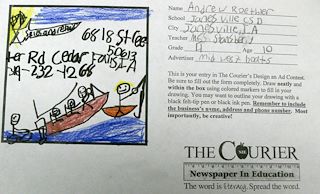 sales and rental
6818 St Gee
ter Rd Cedar Falls IA
50613
319-232-1268
Name Andrew Roethler
School Janesville CSD
City Janesville, IA
Teacher
Grade 4 Age 10
Advertiser mid west boats
This is your entry in The Courier's Design an Ad Contest.
Be sure to fill out the form completely. Draw neatly and
within the box using colored markers to fill in your
drawing. You may want to outline your drawing with a
black felt-tip pen or black ink pen. Remember to include
the business's name, address and phone number. Most
importantly, be creative!
THE COURIER
NIE
Newspaper In Education
The word is literacy. Spread the word.